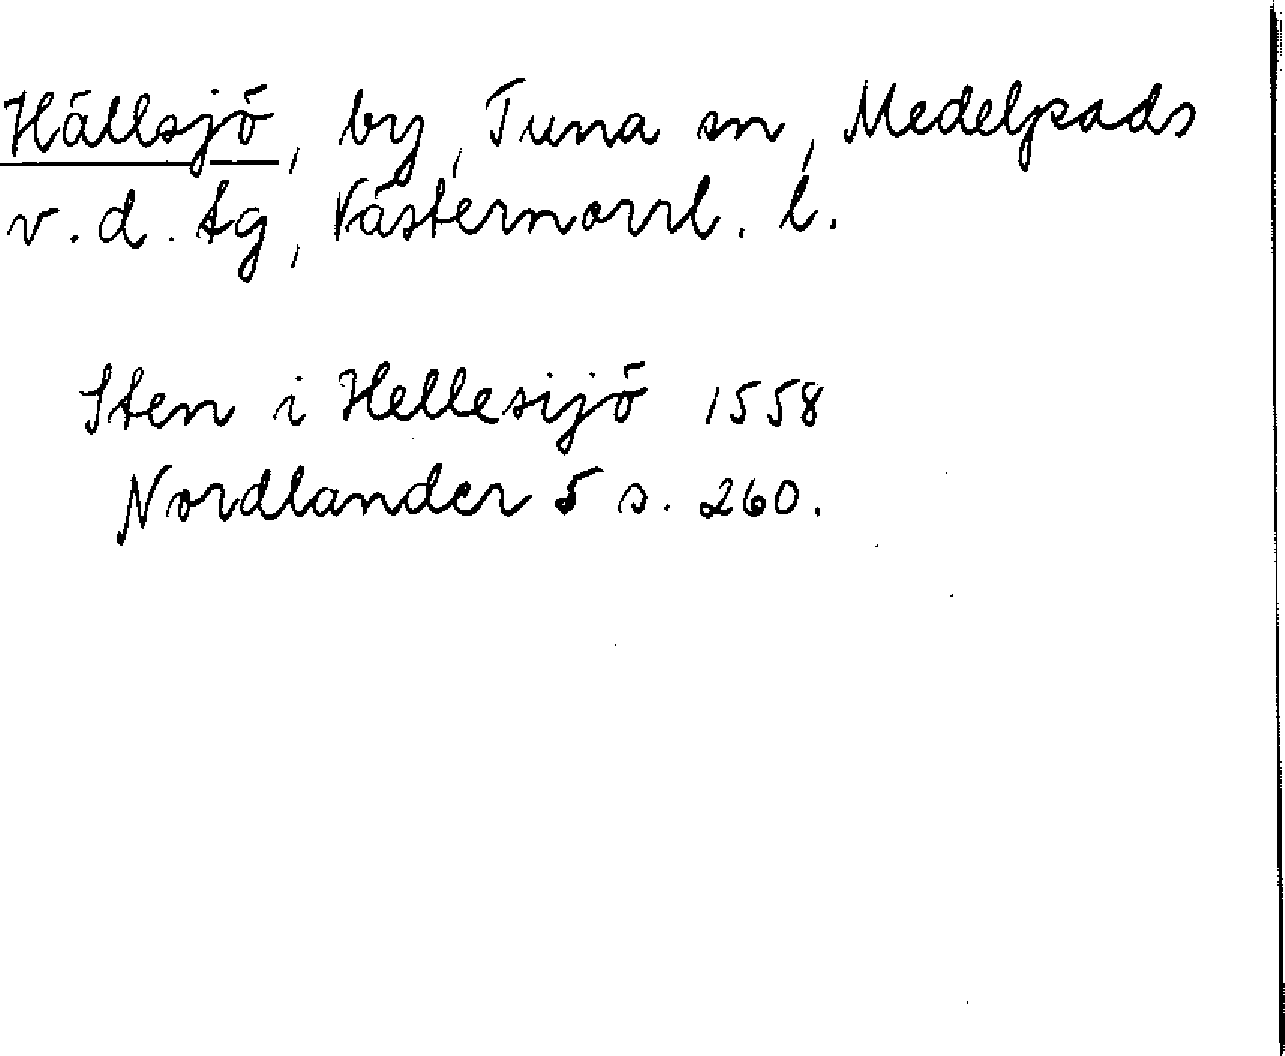 Hällsjö, by, Tuna sn, Medelpads
v. d. tg, Västernorrl. l.
Sten i Hellesijö 1558
Nordlander 5 s. 260.